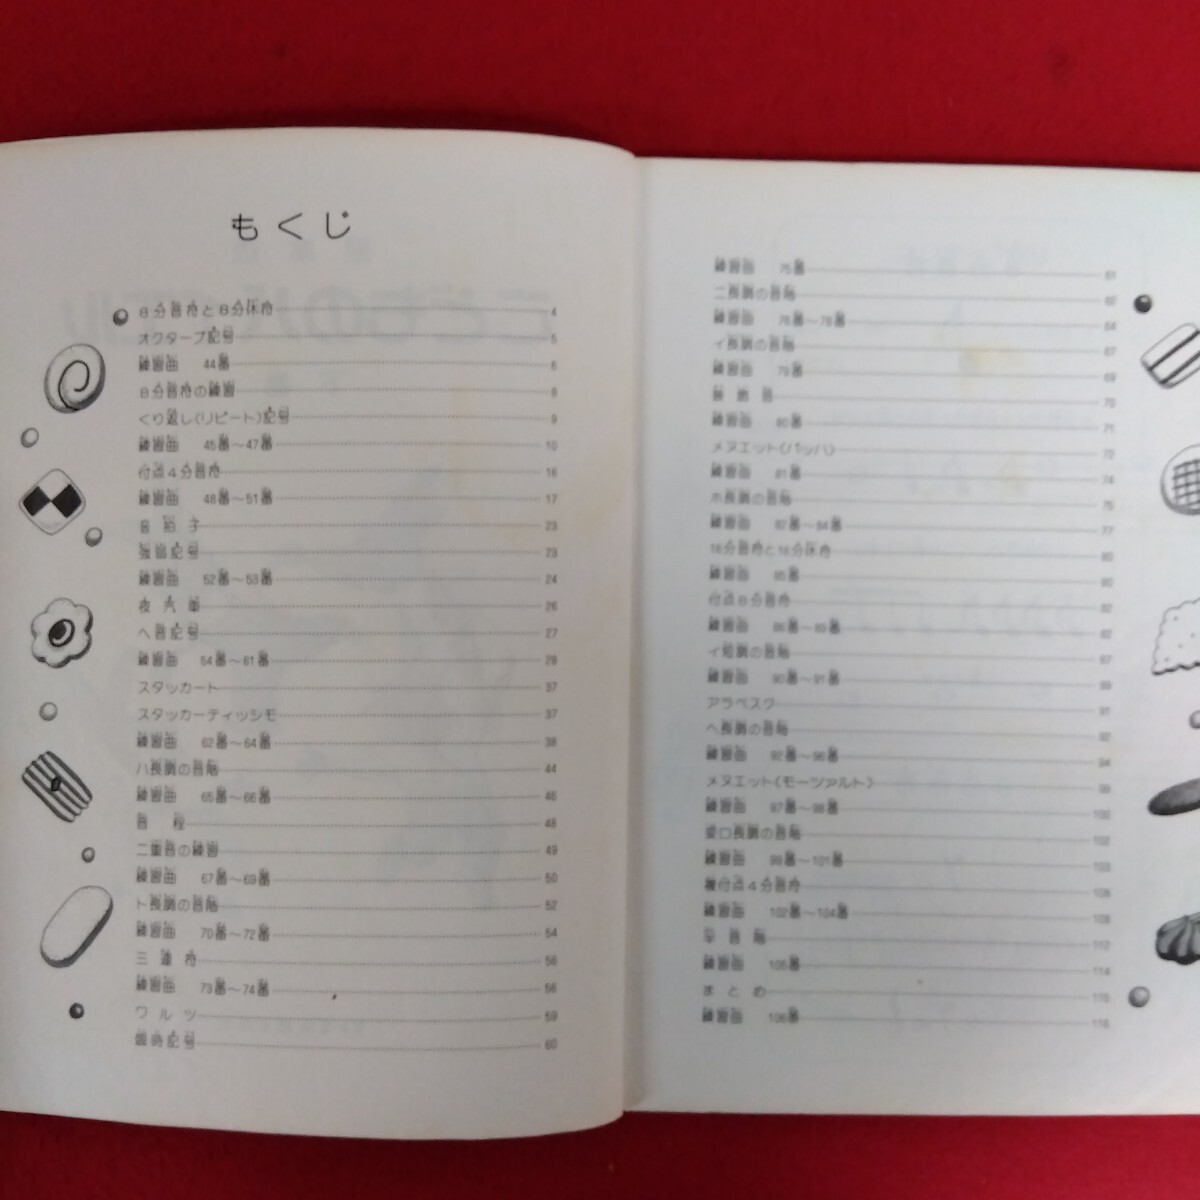 もくじ
8分音符と8分休符 4
オクターブ記号 5
練習曲 44番 6
8分音符の練習 8
くり返し(リピート)記号 9
練習曲 45番〜47番 10
付点4分音符 16
練習曲 48番〜51番 17
音拍子 23
強弱記号 23
練習曲 52番〜53番 24
夜汽車 26
ヘ音記号 27
練習曲 54番〜61番 28
スタッカート 37
スタッカーティッシモ 37
練習曲 62番〜64番 38
ハ長調の音階 44
練習曲 65番〜66番 46
音程 48
二重音の練習 49
練習曲 67番〜69番 50
ト長調の音階 52
練習曲 70番〜72番 54
三連符 56
練習曲 73番〜74番 56
ワルツ 59
臨時記号 60
練習曲 75番 61
ニ長調の音階 62
練習曲 76番〜78番 64
イ長調の音階 67
練習曲 79番 69
装飾音 70
練習曲 80番 71
メヌエット(バッハ) 72
練習曲 81番 74
ホ長調の音階 75
練習曲 82番〜84番 77
16分音符と16分休符 80
練習曲 85番 80
付点8分音符 82
練習曲 86番〜89番 82
イ短調の音階 87
練習曲 90番〜91番 89
アラベスク 91
ヘ長調の音階 92
練習曲 92番〜96番 94
メヌエット(モーツァルト) 99
練習曲 97番〜98番 100
変ロ長調の音階 102
練習曲 99番〜101番 103
複付点4分音符 108
練習曲 102番〜104番 108
半音階 112
練習曲 105番 114
まとめ 115
練習曲 106番 116